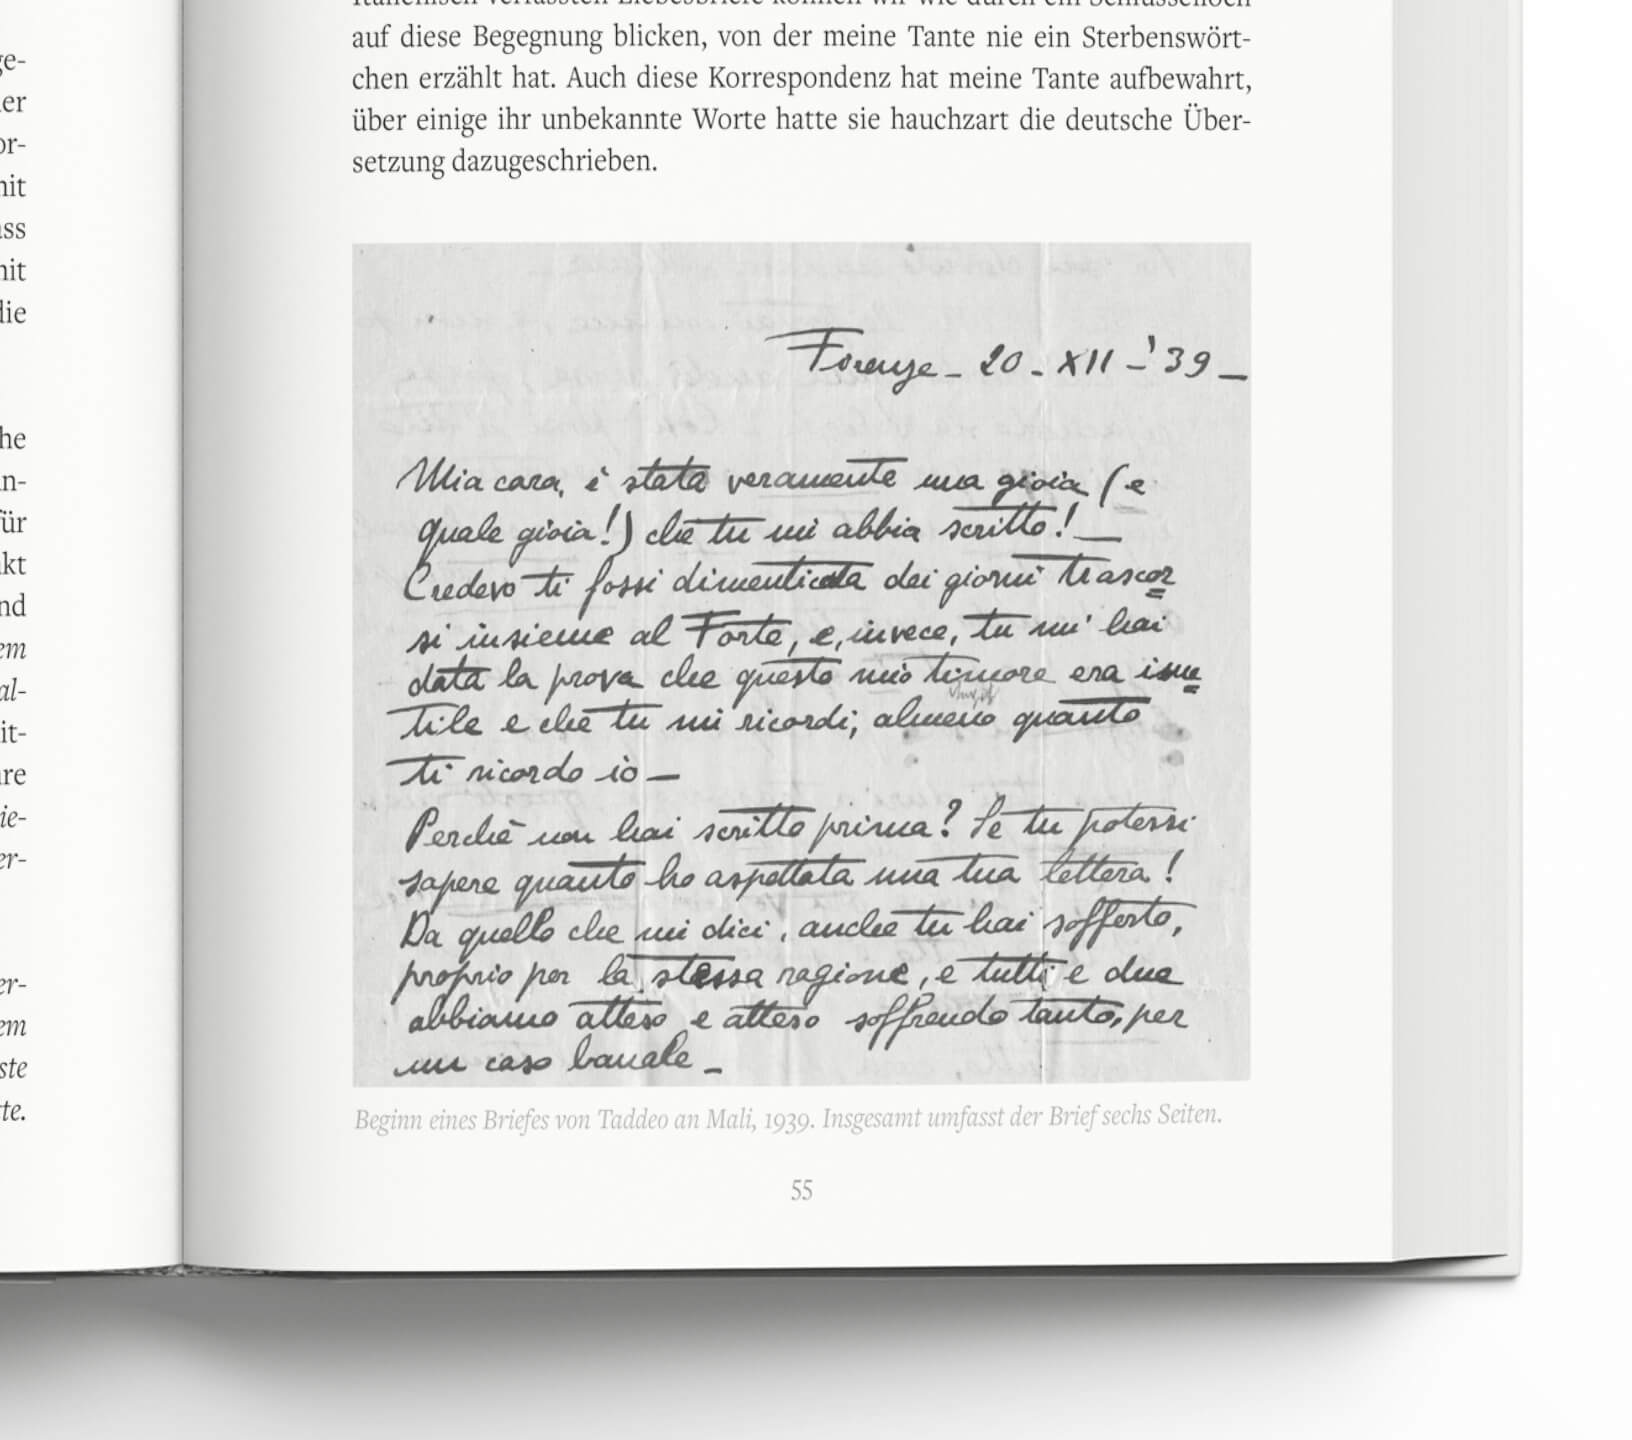 ge-
er
or-
mit
ass
mit
die
he
n-
für
kt
nd
em
al-
it-
are
ie-
er-
er-
em
ste
te.
Italienisch verfassten Liebesbriefe können wir wie durch ein Schlüsselloch
auf diese Begegnung blicken, von der meine Tante nie ein Sterbenswört-
chen erzählt hat. Auch diese Korrespondenz hat meine Tante aufbewahrt,
über einige ihr unbekannte Worte hatte sie hauchzart die deutsche Über-
setzung dazugeschrieben.
Firenze - 20 - XII - '39 -
Mia cara, è stata veramente una gioia (e
quale gioia!) che tu mi abbia scritto! -
Credevo ti fossi dimenticata dei giorni trascor
si insieme al Forte, e, invece, tu mi hai
data la prova che questo mio timore era inu
tile e che tu mi ricordi, almeno quanto
ti ricordo io -
Perchè non hai scritto prima? Se tu potessi
sapere quanto ho aspettata una tua lettera!
Da quello che mi dici, anche tu hai sofferto,
proprio per la stessa ragione, e tutti e due
abbiamo atteso e atteso soffrendo tanto, per
un caso banale -
Beginn eines Briefes von Taddeo an Mali, 1939. Insgesamt umfasst der Brief sechs Seiten.
55